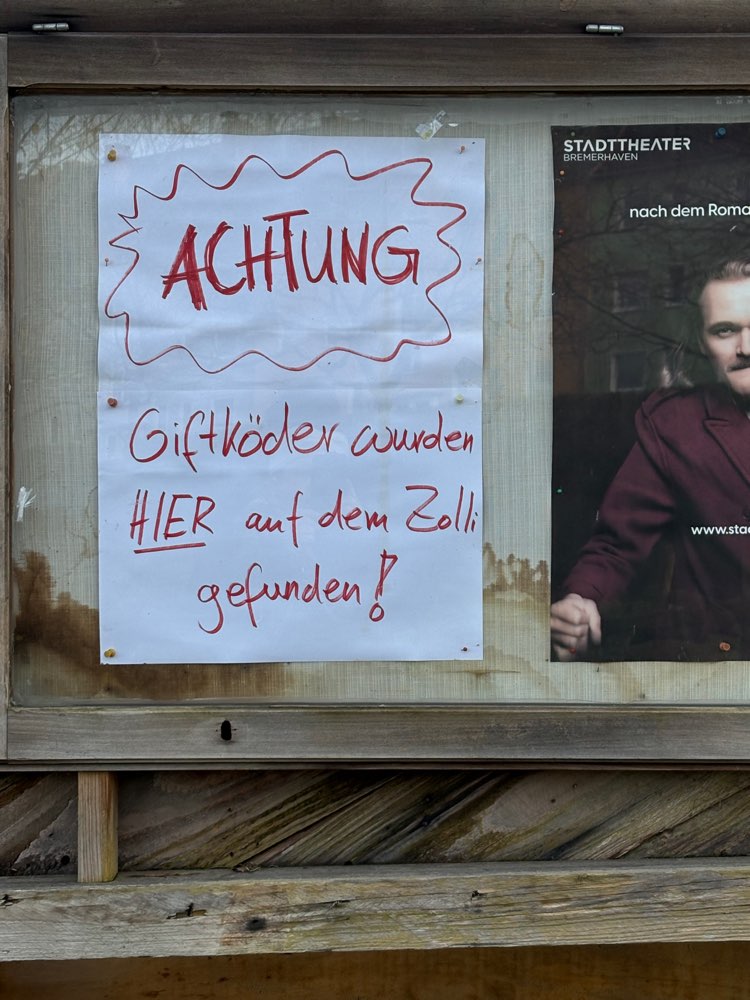 ACHTUNG
Giftköder wurden
HIER auf dem Zolli
gefunden!
STADTTHEATER
BREMERHAVEN
nach dem Roma
www.stad